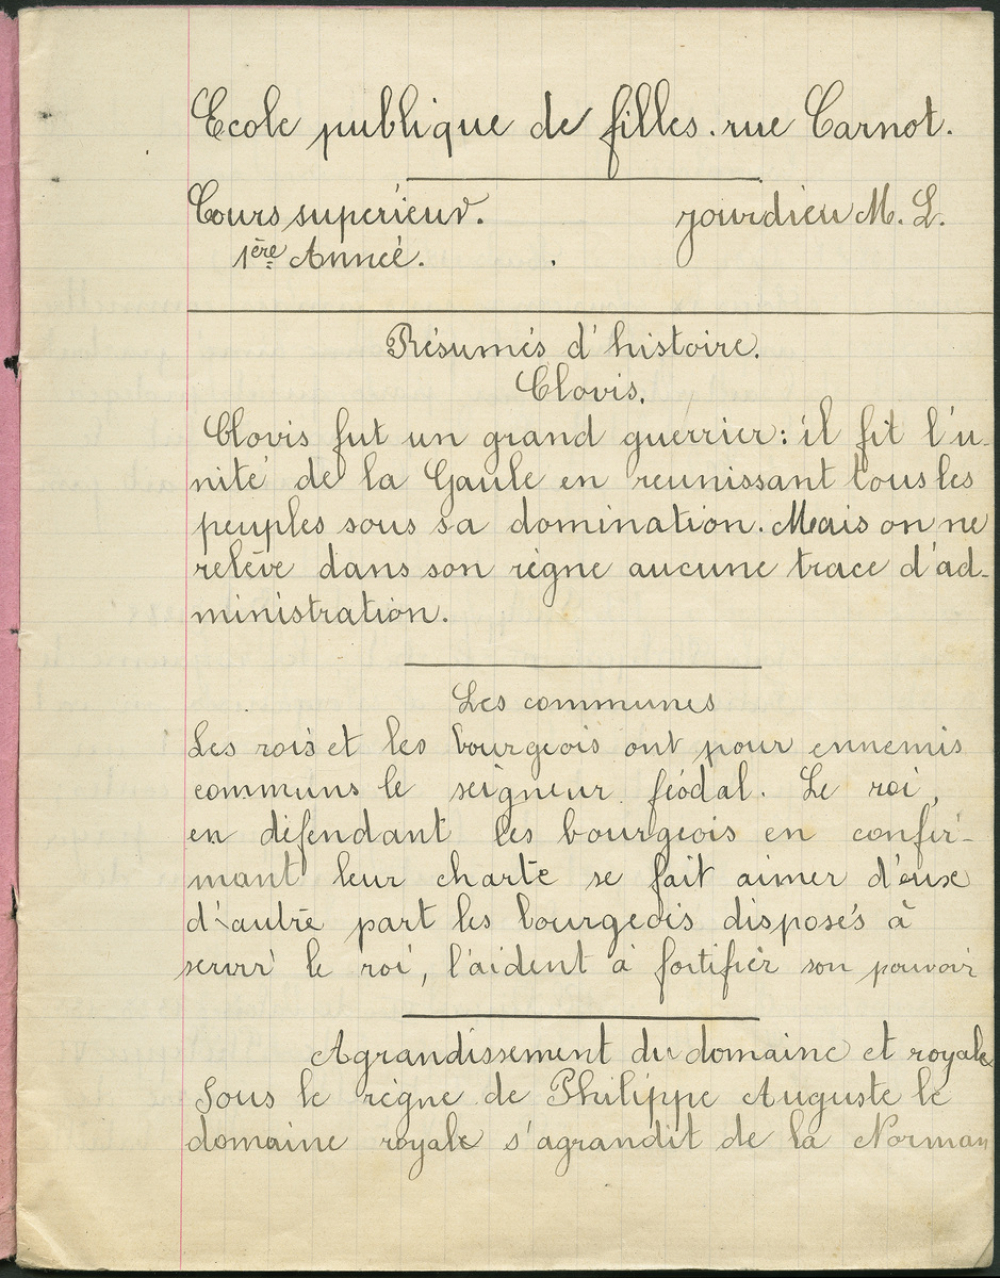 Ecole publique de filles. rue Carnot.
Cours superieur. Jourdieu M. L.
1ère Année.
Résumés d'histoire.
Clovis.
Clovis fut un grand guerrier: il fit l'u-
nité de la Gaule en reunissant tous les
peuples sous sa domination. Mais on ne
relève dans son règne aucune trace d'ad-
ministration.
Les communes
Les rois et les bourgeois ont pour ennemis
communs le seigneur féodal. Le roi,
en défendant les bourgeois en confir-
mant leur charte se fait aimer d'eux
d'autre part les bourgeois disposés à
servir le roi, l'aident à fortifier son pouvoir
Agrandissement du domaine et royale
Sous le règne de Philippe Auguste le
domaine royale s'agrandit de la Norman